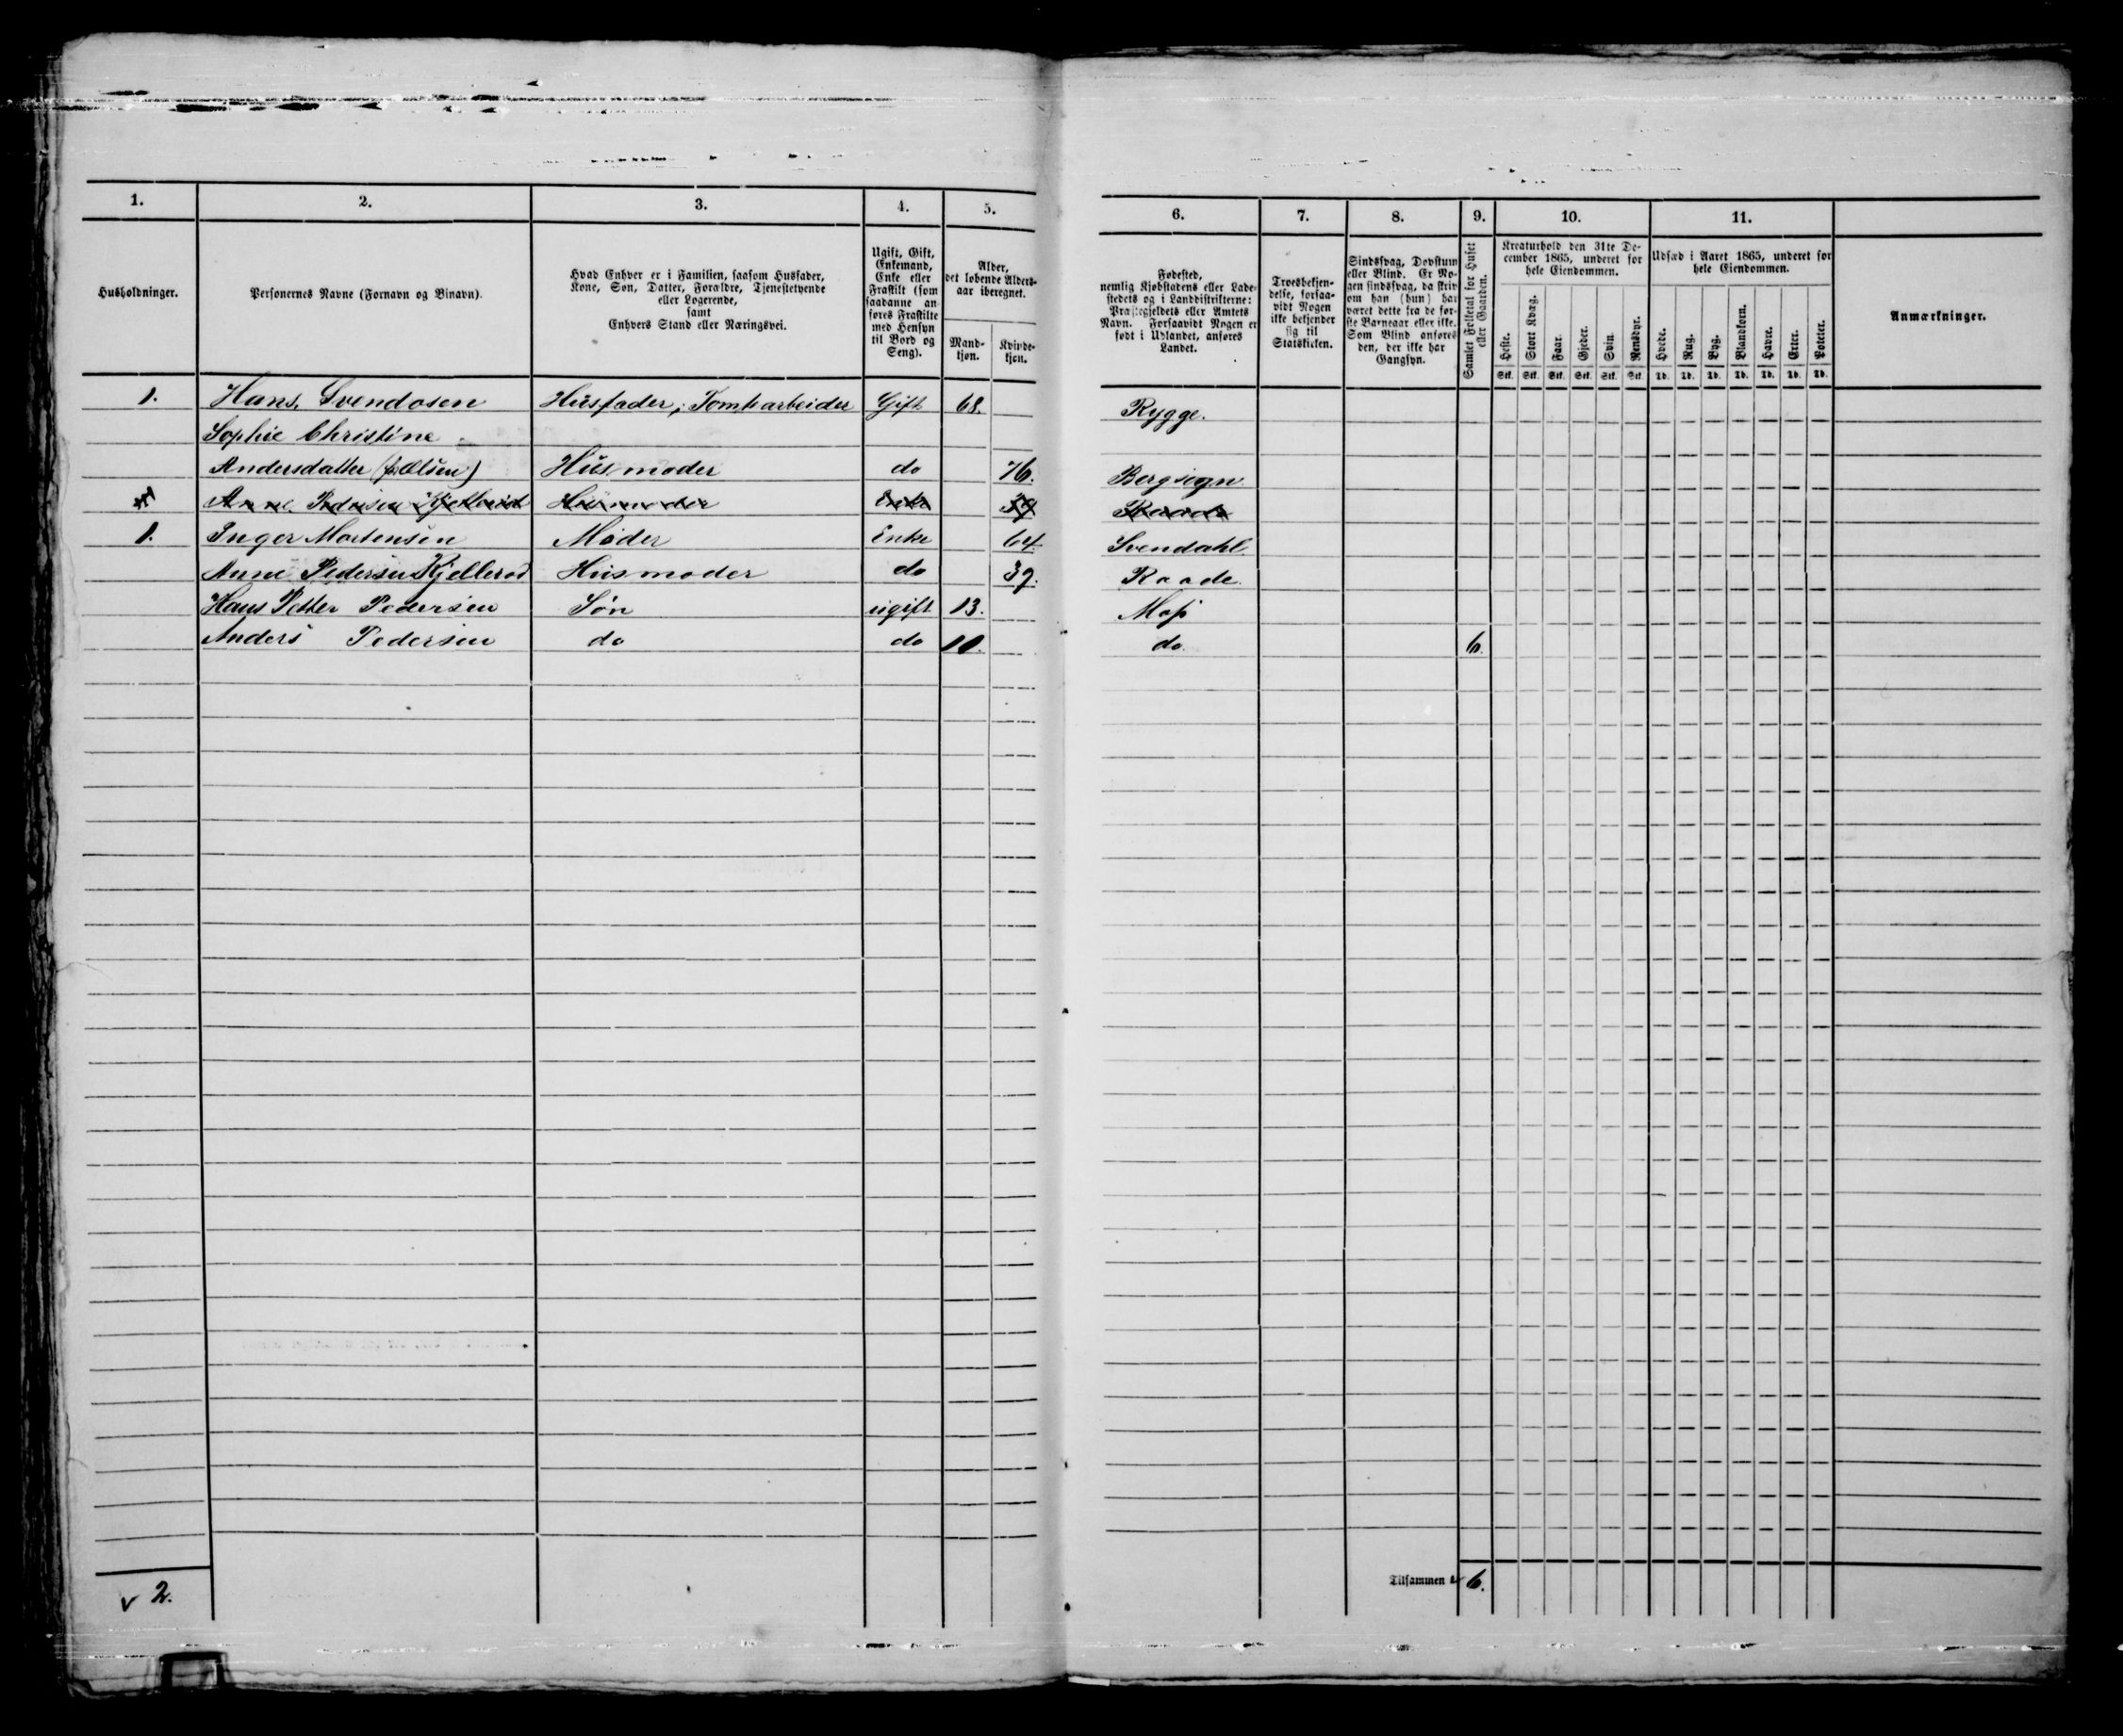 1. 2. 3. 4. 5. 6. 7. 8. 9. 10. 11.
Husholdninger.
Personernes Navne (Fornavn og Binavn).
Hvad Enhver er i Familien, saasom Husfader,
Kone, Søn, Datter, Forældre, Tjenestetyende
eller Logerende,
samt
Enhvers Stand eller Næringsvei.
Ugift, Gift,
Enkemand,
Enke eller
Fraskilt (som
saadanne an-
føres Fraskilte
med Hensyn
til Bord og
Seng).
Alder,
det løbende Alders-
aar iberegnet.
Mand-
kjøn.
Kvinde-
kjøn.
Fødested,
nemlig Kjøbstadens eller Lade-
stedets og i Landdistrikterne:
Præstegjeldets eller Amtets
Navn. Forsaavidt Nogen er
født i Udlandet, anføres
Landet.
Troesbekjen-
delse, forsaa-
vidt Nogen
ikke bekjender
sig til
Statskirken.
Sindssvag, Døvstum
eller Blind. Er No-
gen sindssvag, da skriv
om han (hun) har
været dette fra de før-
ste Barneaar eller ikke.
Som Blind anføres
den, der ikke har
Gangsyn.
Samlet Folketal for Huset
eller Gaarden.
Kreaturhold den 31te De-
cember 1865, underet for
hele Eiendommen.
Heste.
Stort Kvæg.
Faar.
Gjeder.
Svin.
Rensdyr.
Stk. Stk. Stk. Stk. Stk. Stk.
Udsæd i Aaret 1865, underet for
hele Eiendommen.
Hvede.
Rug.
Byg.
Blandkorn.
Havre.
Erter.
Poteter.
Td. Td. Td. Td. Td. Td. Td.
Anmærkninger.
1. Hans Svendosen Husfader; Tomtearbeider Gift 68. Rygge.
Sophie Christine
Andersdatter Husmoder do 76. Bergsogn
Anne Pedersen Kjellerød Husmoder Enke 39 Raade
1. Inger Mortensen Moder Enke 64. Svendahl
Anne Pedersen Kjellerød Husmoder do 39. Raade.
Hans Petter Pedersen Søn ugift 13. Moss
Anders Pedersen do do 10. do. 6.
Tilsammen 6.
v 2.